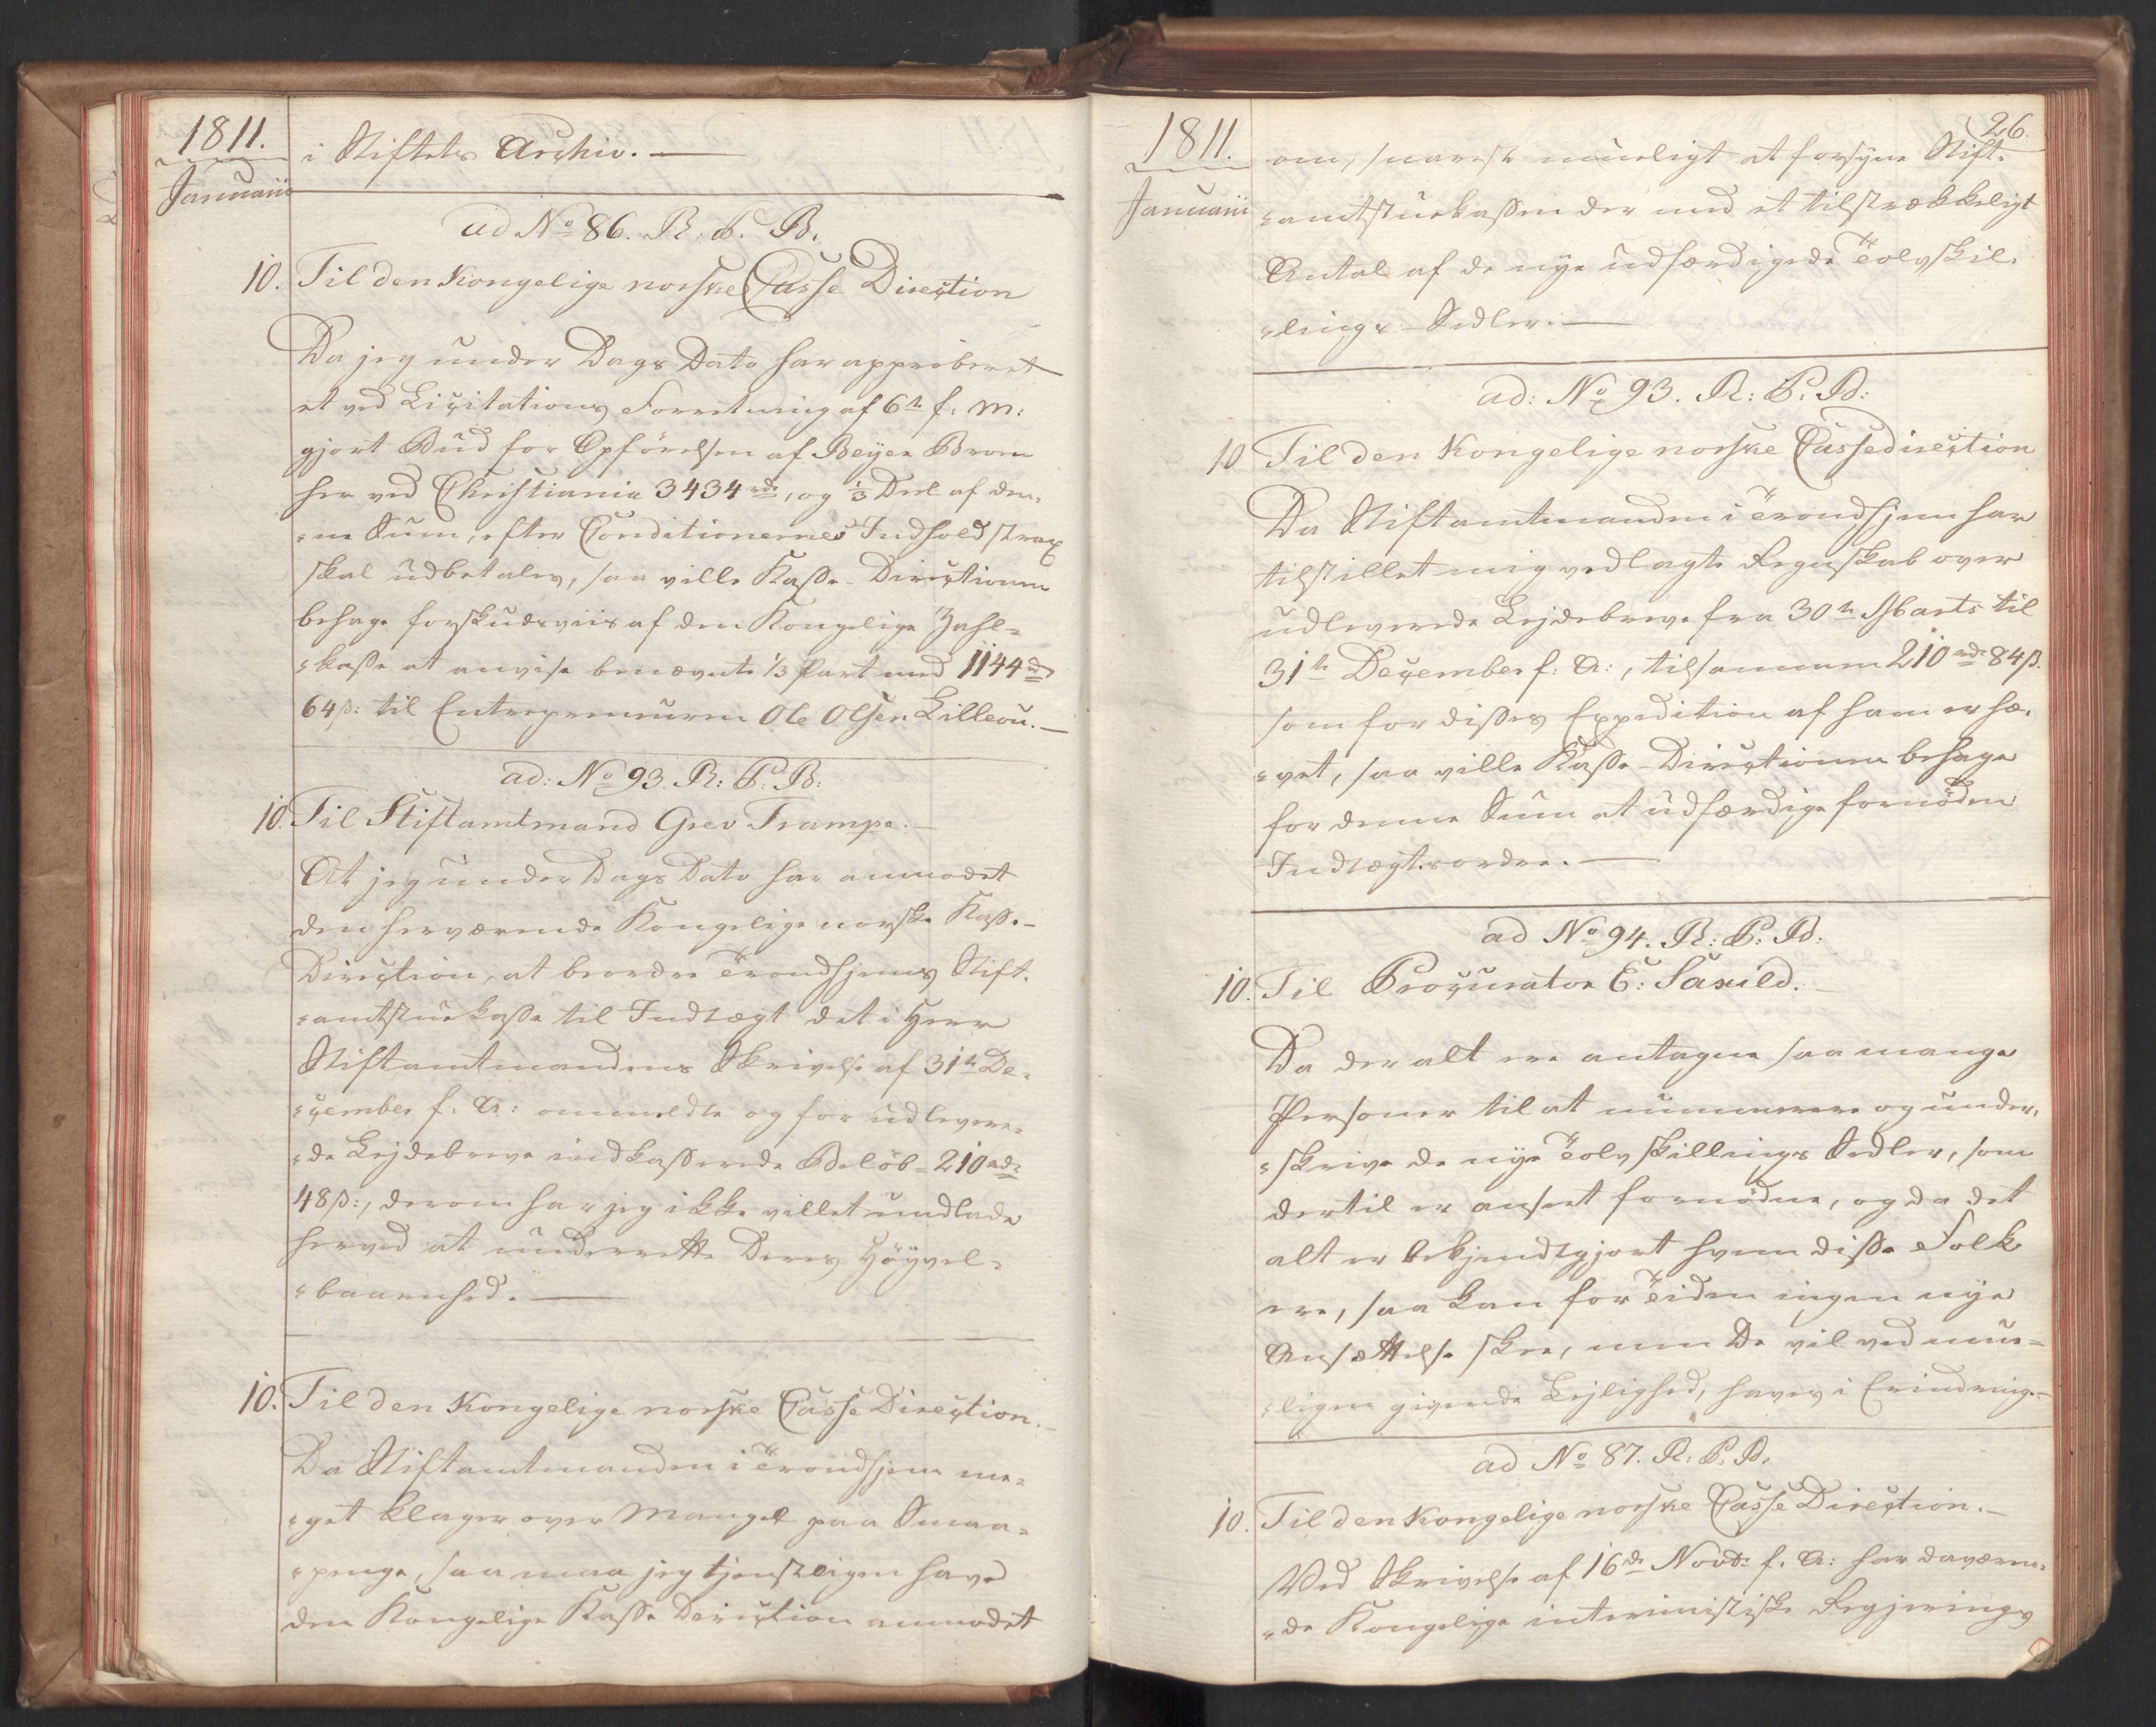 1811.
Januarii
i Stiftets Archiv. —
ad No 86. R. P. B.
10. Til den Kongelige norske Casse Direction
Da jeg under Dags Dato har approberet
et ved Licitations Forretning af 6te f. M:
gjort Bud for Opförelsen af Beyer Broen
her ved Christiania 3434 rdr, og 1/3 Deel af den-
ne Sum, efter Conditionernes Indhold strax
skal udbetales, saa ville Kasse-Directionen
behage forskudsviis af den Kongelige Zahl-
kasse at anvise benævnte 1/3 Part med 1144 rd
64 ß: til Entrepreneuren Ole Olsen Lilleou. —
ad: No 93. R: P: B:
10. Til Stiftamtmand Grev Trampe. —
At jeg under Dags Dato har anmodet
den herværende Kongelige norske Kasse-
Direction, at beordre Trondhjems Stift-
amtstuekasse til Indtægt det i Herr
Stiftamtmandens Skrivelse af 31te De-
cember f. A: ommeldte og for udlevere-
de Lejdebreve indkasserede Belöb - 210 rdr
48 ß:, derom har jeg ikke villet undlade
herved at underrette Deres Höyvel-
baarenhed. —
10. Til den Kongelige norske Casse Direction. —
Da Stiftamtmanden i Trondhjem me-
get klager over Mangel paa Smaa-
penge, saa maa jeg tjenstligen have
den Kongelige Kasse Direction anmodet
1811.
Januarii
26.
om, snarest mueligt at forsyne Stift-
amtstuekassen der med et tilstrækkeligt
Antal af de nye udfærdigede Tolvskil-
lings-Sedler. —
ad: No 93. R: P: B:
10 Til den Kongelige norske Cassedirection
Da Stiftamtmanden i Trondhjem har
tilstillet mig vedlagte Regnskab over
udleverede Lejdebreve fra 30te Marts til
31te December f: A:, tilsammen 210 rdr 84 ß.
som for disses Expedition af ham er hæ-
vet, saa ville Kasse-Directionen behage
for denne Sum at udfærdige fornöden
Indtægtsordre. —
ad No 94. R: P: B:
10. Til Procurator E: Saxild. —
Da der alt ere antagne saa mange
Personer til at nummerere og under-
skrive de nye Tolvskillings Sedler, som
dertil er anseet fornödne, og da det
alt er bekjendtgjort hvem disse Folk
ere, saa kan for Tiden ingen nye
Ansættelse skee, men De vil ved mue-
ligen givende Lejlighed, haves i Erindring. —
ad No 87. R: P: B.
10. Til den Kongelige norske Casse Direction. —
Ved Skrivelse af 16de Novbr f. A: har daværen-
de Kongelige interimistiske Regjerings